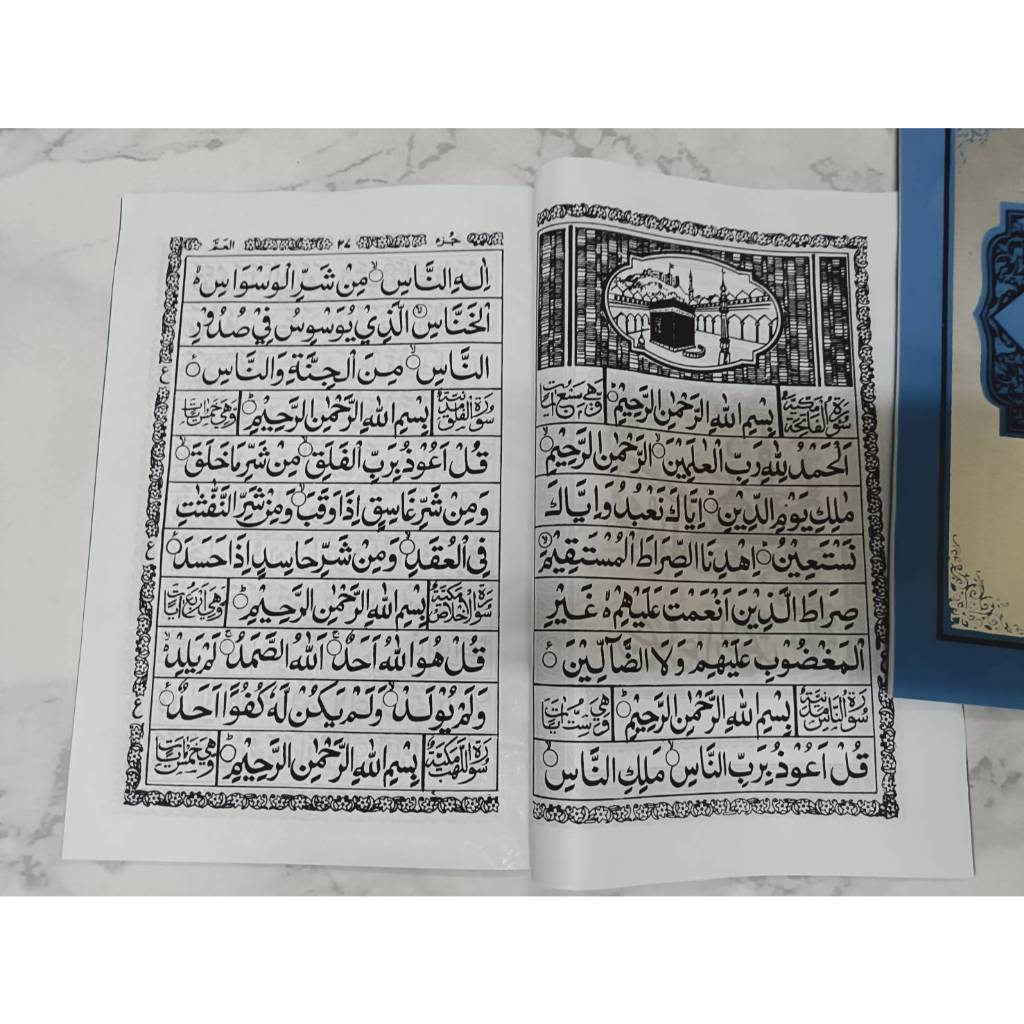 سُوْرَةُ الْفَاتِحَةِ مَكِّيَّةٌ بِسْمِ اللهِ الرَّحْمٰنِ الرَّحِيْمِ وَهِيَ سَبْعُ اٰيَاتٍ
اَلْحَمْدُ لِلّٰهِ رَبِّ الْعٰلَمِيْنَ الرَّحْمٰنِ الرَّحِيْمِ
مٰلِكِ يَوْمِ الدِّيْنِ اِيَّاكَ نَعْبُدُ وَاِيَّاكَ
نَسْتَعِيْنُ اِهْدِنَا الصِّرَاطَ الْمُسْتَقِيْمَ
صِرَاطَ الَّذِيْنَ اَنْعَمْتَ عَلَيْهِمْ غَيْرِ
الْمَغْضُوْبِ عَلَيْهِمْ وَلَا الضَّآلِّيْنَ
سُوْرَةُ النَّاسِ مَدَنِيَّةٌ بِسْمِ اللهِ الرَّحْمٰنِ الرَّحِيْمِ وَهِيَ سِتُّ اٰيَاتٍ
قُلْ اَعُوْذُ بِرَبِّ النَّاسِ مَلِكِ النَّاسِ
جُزء ٢٧ العم
اِلٰهِ النَّاسِ مِنْ شَرِّ الْوَسْوَاسِ
الْخَنَّاسِ الَّذِيْ يُوَسْوِسُ فِيْ صُدُوْرِ
النَّاسِ مِنَ الْجِنَّةِ وَالنَّاسِ
سُوْرَةُ الْفَلَقِ مَدَنِيَّةٌ بِسْمِ اللهِ الرَّحْمٰنِ الرَّحِيْمِ وَهِيَ خَمْسُ اٰيَاتٍ
قُلْ اَعُوْذُ بِرَبِّ الْفَلَقِ مِنْ شَرِّ مَا خَلَقَ
وَمِنْ شَرِّ غَاسِقٍ اِذَا وَقَبَ وَمِنْ شَرِّ النَّفّٰثٰتِ
فِي الْعُقَدِ وَمِنْ شَرِّ حَاسِدٍ اِذَا حَسَدَ
سُوْرَةُ الْاِخْلَاصِ مَكِّيَّةٌ بِسْمِ اللهِ الرَّحْمٰنِ الرَّحِيْمِ وَهِيَ اَرْبَعُ اٰيَاتٍ
قُلْ هُوَ اللهُ اَحَدٌ اَللهُ الصَّمَدُ لَمْ يَلِدْ
وَلَمْ يُوْلَدْ وَلَمْ يَكُنْ لَّهٗ كُفُوًا اَحَدٌ
سُوْرَةُ اللَّهَبِ مَكِّيَّةٌ بِسْمِ اللهِ الرَّحْمٰنِ الرَّحِيْمِ وَهِيَ خَمْسُ اٰيَاتٍ